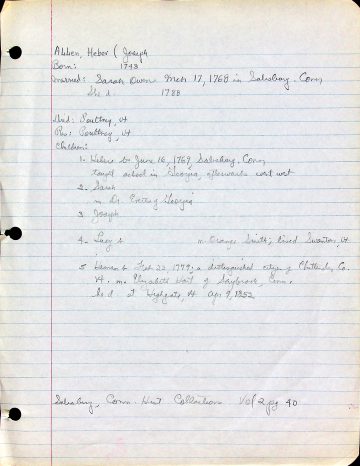 Allen, Heber ( Joseph
Born: 1743
Married: Sarah Owen Mch 17, 1768 in Salisbury, Conn
She d. 1788
Lived: Poultney, Vt
Res: Poultney, Vt
Children:
1. Heber b. June 16, 1769, Salisbury, Conn
taught school in Georgia, afterwards went west
2. Sarah
m. Dr. of Georgia
3 Joseph
4. Lucy b m. Orange Smith; lived Swanton, Vt
5 Heman b Feb 23, 1779; a distinguished citizen of Chittenden Co.
Vt. m. Elizabeth Hart of Saybrook, Conn.
he d at Highgate, Vt Apr 9, 1852
Salisbury, Conn. Collections Vol 2 pg 40